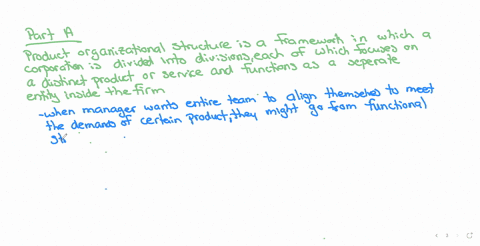 Part A
Product organizational structure is a framework in which a
corporation is divided into divisions, each of which focuses on
a distinct product or service and functions as a seperate
entity inside the firm
-when manager wants entire team to align themselves to meet
the demands of certain product, they might go from functional
st